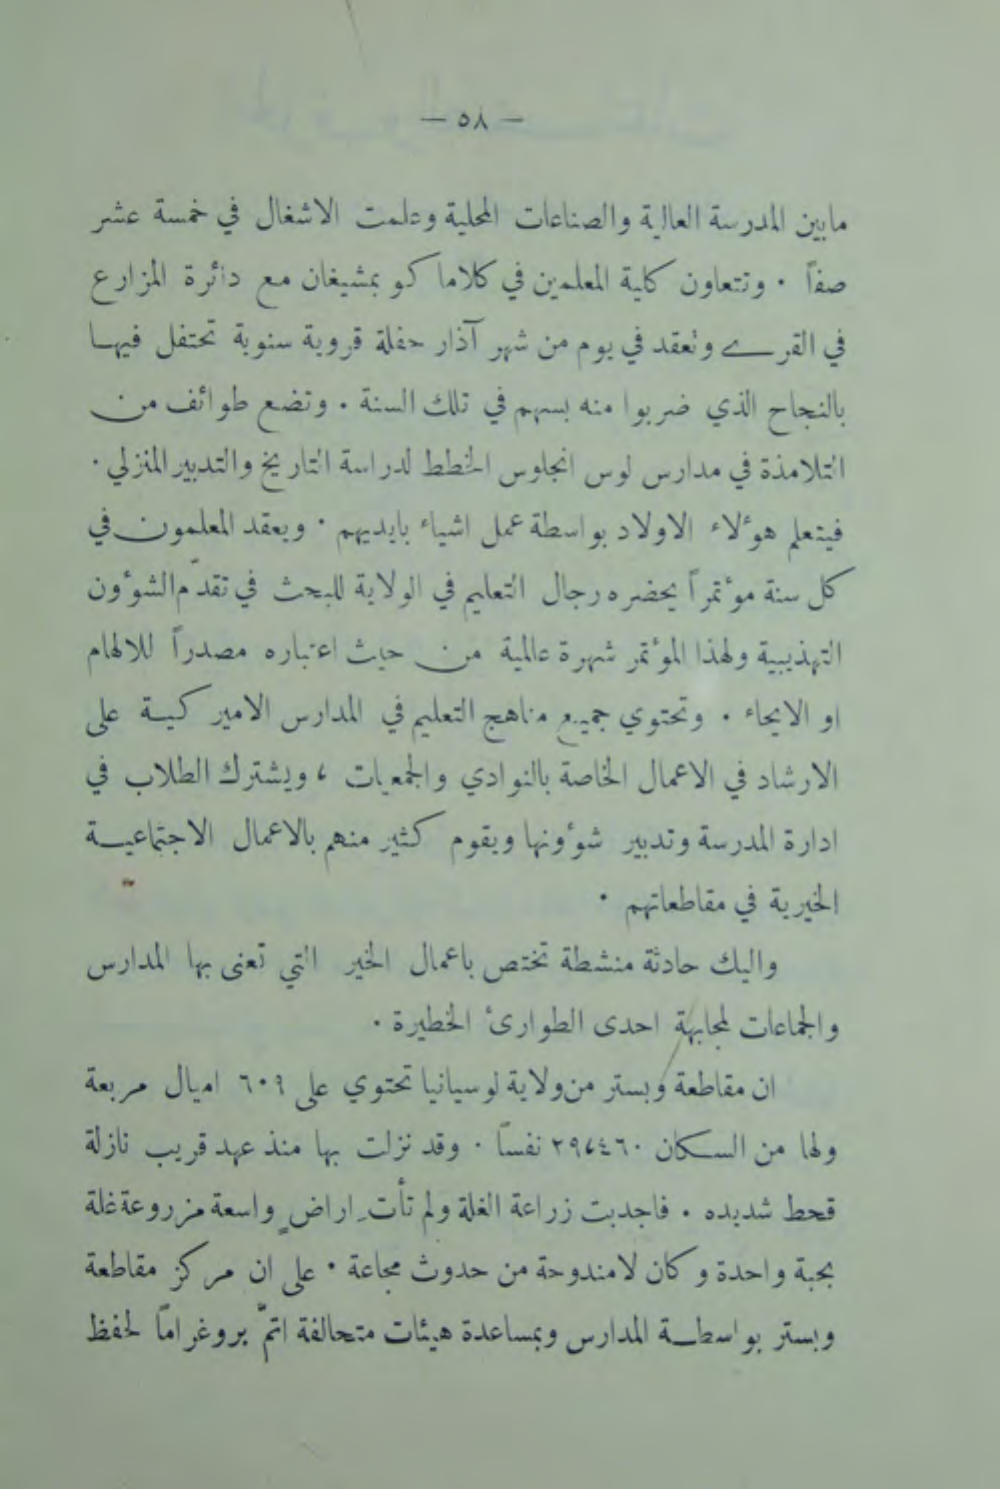 — ٥٨ —
مابين المدرسة العالية والصناعات المحلية وعلمت الاشغال في خمسة عشر
صفاً ٠ وتتعاون كلية المعلمين في كلاما كو بمشيغان مع دائرة المزارع
في القرى وتعقد في يوم من شهر آذار حفلة قروية سنوية تحتفل فيها
بالنجاح الذي ضربوا منه بسهم في تلك السنة ٠ وتضع طوائف من
التلامذة في مدارس لوس انجلوس الخطط لدراسة التاريخ والتدبير المنزلي ٠
فيتعلم هؤلاء الاولاد بواسطة عمل اشياء بايديهم ٠ ويعقد المعلمون في
كل سنة مؤتمراً يحضره رجال التعليم في الولاية للبحث في تقدّم الشؤون
التهذيبية ولهذا المؤتمر شهرة عالمية من حيث اعتباره مصدراً للالهام
او الايحاء ٠ وتحتوي جميع مناهج التعليم في المدارس الاميركية على
الارشاد في الاعمال الخاصة بالنوادي والجمعيات ، ويشترك الطلاب في
ادارة المدرسة وتدبير شؤونها ويقوم كثير منهم بالاعمال الاجتماعية
الخيرية في مقاطعاتهم ٠
واليك حادثة منشطة تختص باعمال الخير التي تعنى بها المدارس
والجماعات لمجابهة احدى الطوارئ الخطيرة ٠
ان مقاطعة وبستر من ولاية لوسيانيا تحتوي على ٦٠٩ اميال مربعة
ولها من السكان ٢٩،٤٦٠ نفساً ٠ وقد نزلت بها منذ عهد قريب نازلة
قحط شديده ٠ فاجدبت زراعة الغلة ولم تأتِ اراضٍ واسعة مزروعة غلة
بحبة واحدة وكان لامندوحة من حدوث مجاعة ٠ على ان مركز مقاطعة
وبستر بواسطة المدارس وبمساعدة هيئات متحالفة اتمّ بروغراماً لحفظ